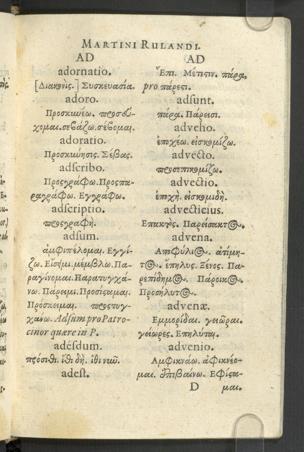 MARTINI RULANDI.
AD
adornatio.
[Διακόσ. ] Συσκευασία.
adoro.
Προσκυνέω. προσεύ-
χομαι. σεβάζω. σέβομαι.
adoratio.
Προσκύνησις. Σέβας.
adscribo.
Προσγράφω. Προσπα-
ραγράφω. Εγγράφω.
adscriptio.
προσγραφή.
adsum.
ἀμφιπέλομαι. Εγγί-
ζω. Είσειμι. μέμβλω. Πα-
ραγίνομαι. Παρατυγχά-
νω. Πάρειμι. Προσίζομαι.
Πρόσκειμαι. προστυγ-
χάνω. Adsum pro Patro-
cinor quære in P.
adesdum.
πρόσιθι. ἴθι δή. ἴθι νιῶ.
adest.
AD
Ἔπι. Μέτεστιν. πάρα.
pro πάρεστι.
adsunt.
πάρα. Πάρεισι.
adveho.
ἐποχέω. εἰσκομίζω.
advecto.
προσεπικομίζω.
advectio.
ἐποχή. εἰσκομιδή.
advecticius.
Επακτός. Παρείσακτος.
advena.
Αποφύλιος. ἀτίμη-
τος. ἔπηλυς. Ξένος. Πα-
ρεπίδημος. Πάροικος.
Προσήλυτος.
advenæ.
Εμμορίδαι. γειῶραι.
γείωρες. Επήλυται.
advenio.
Αμφικνάω. ἀφικνέο-
μαι. ἐπιβαίνω. Εφίστα-
D μαι.